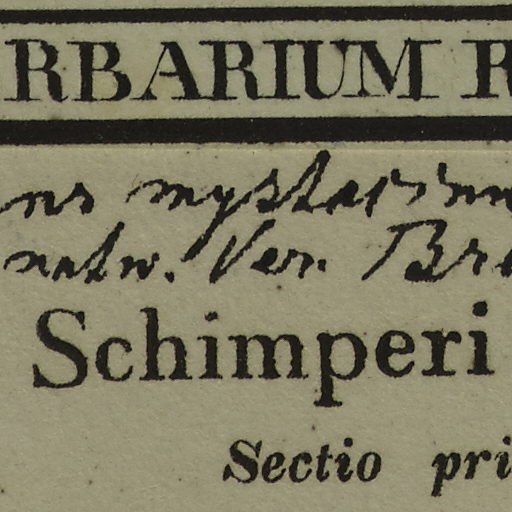 RBARIUM R
ns mystacinu
natw. Ver. Br
Schimperi
Sectio pri